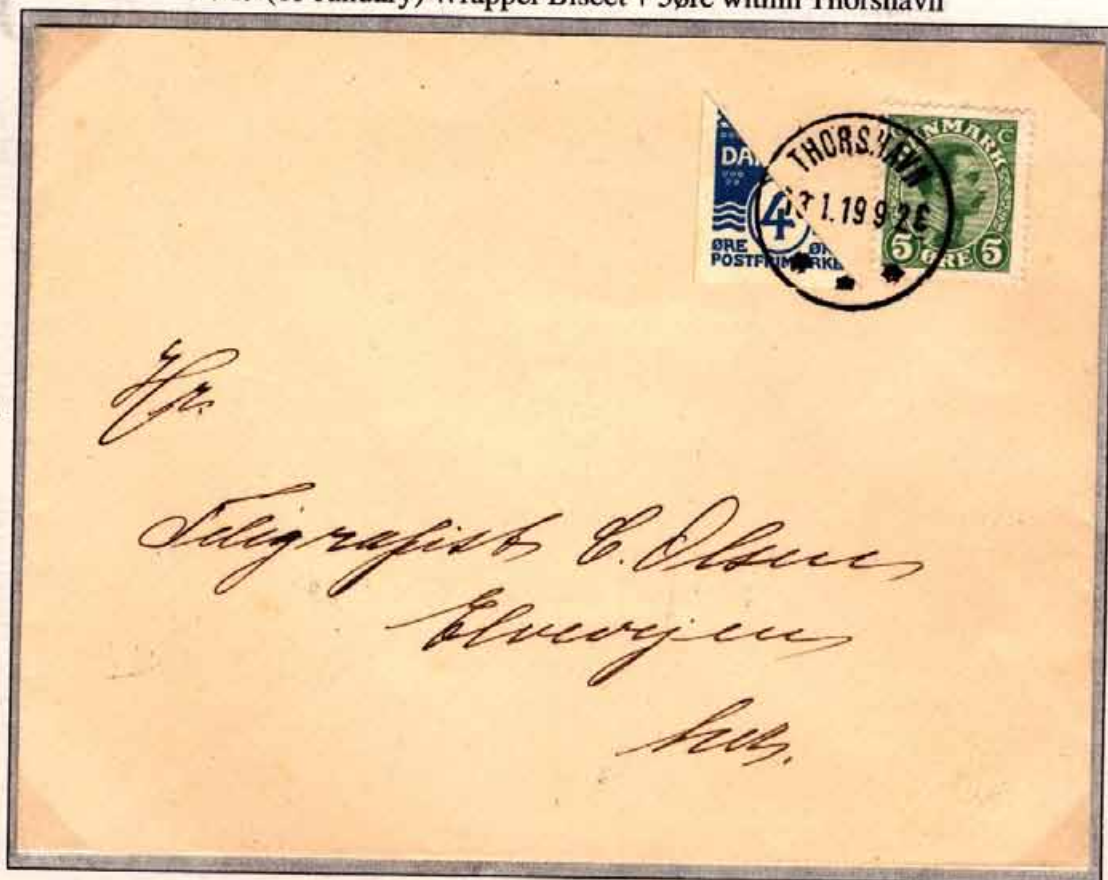 January) Wrapper Bisect + 5øre within Thorshavn
DAN
4
ØRE ØR
POSTFRIMÆRKE
THORSHAVN
13 1.19 9-2E
DANMARK
5 ØRE 5
Hr.
Telegrafist C. Olsen
Elvevejen
her.